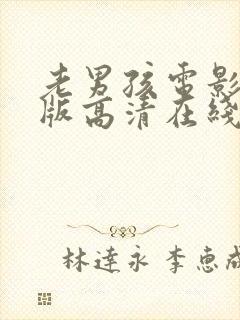 老男孩电影
版高清在线
林達永 李惠成